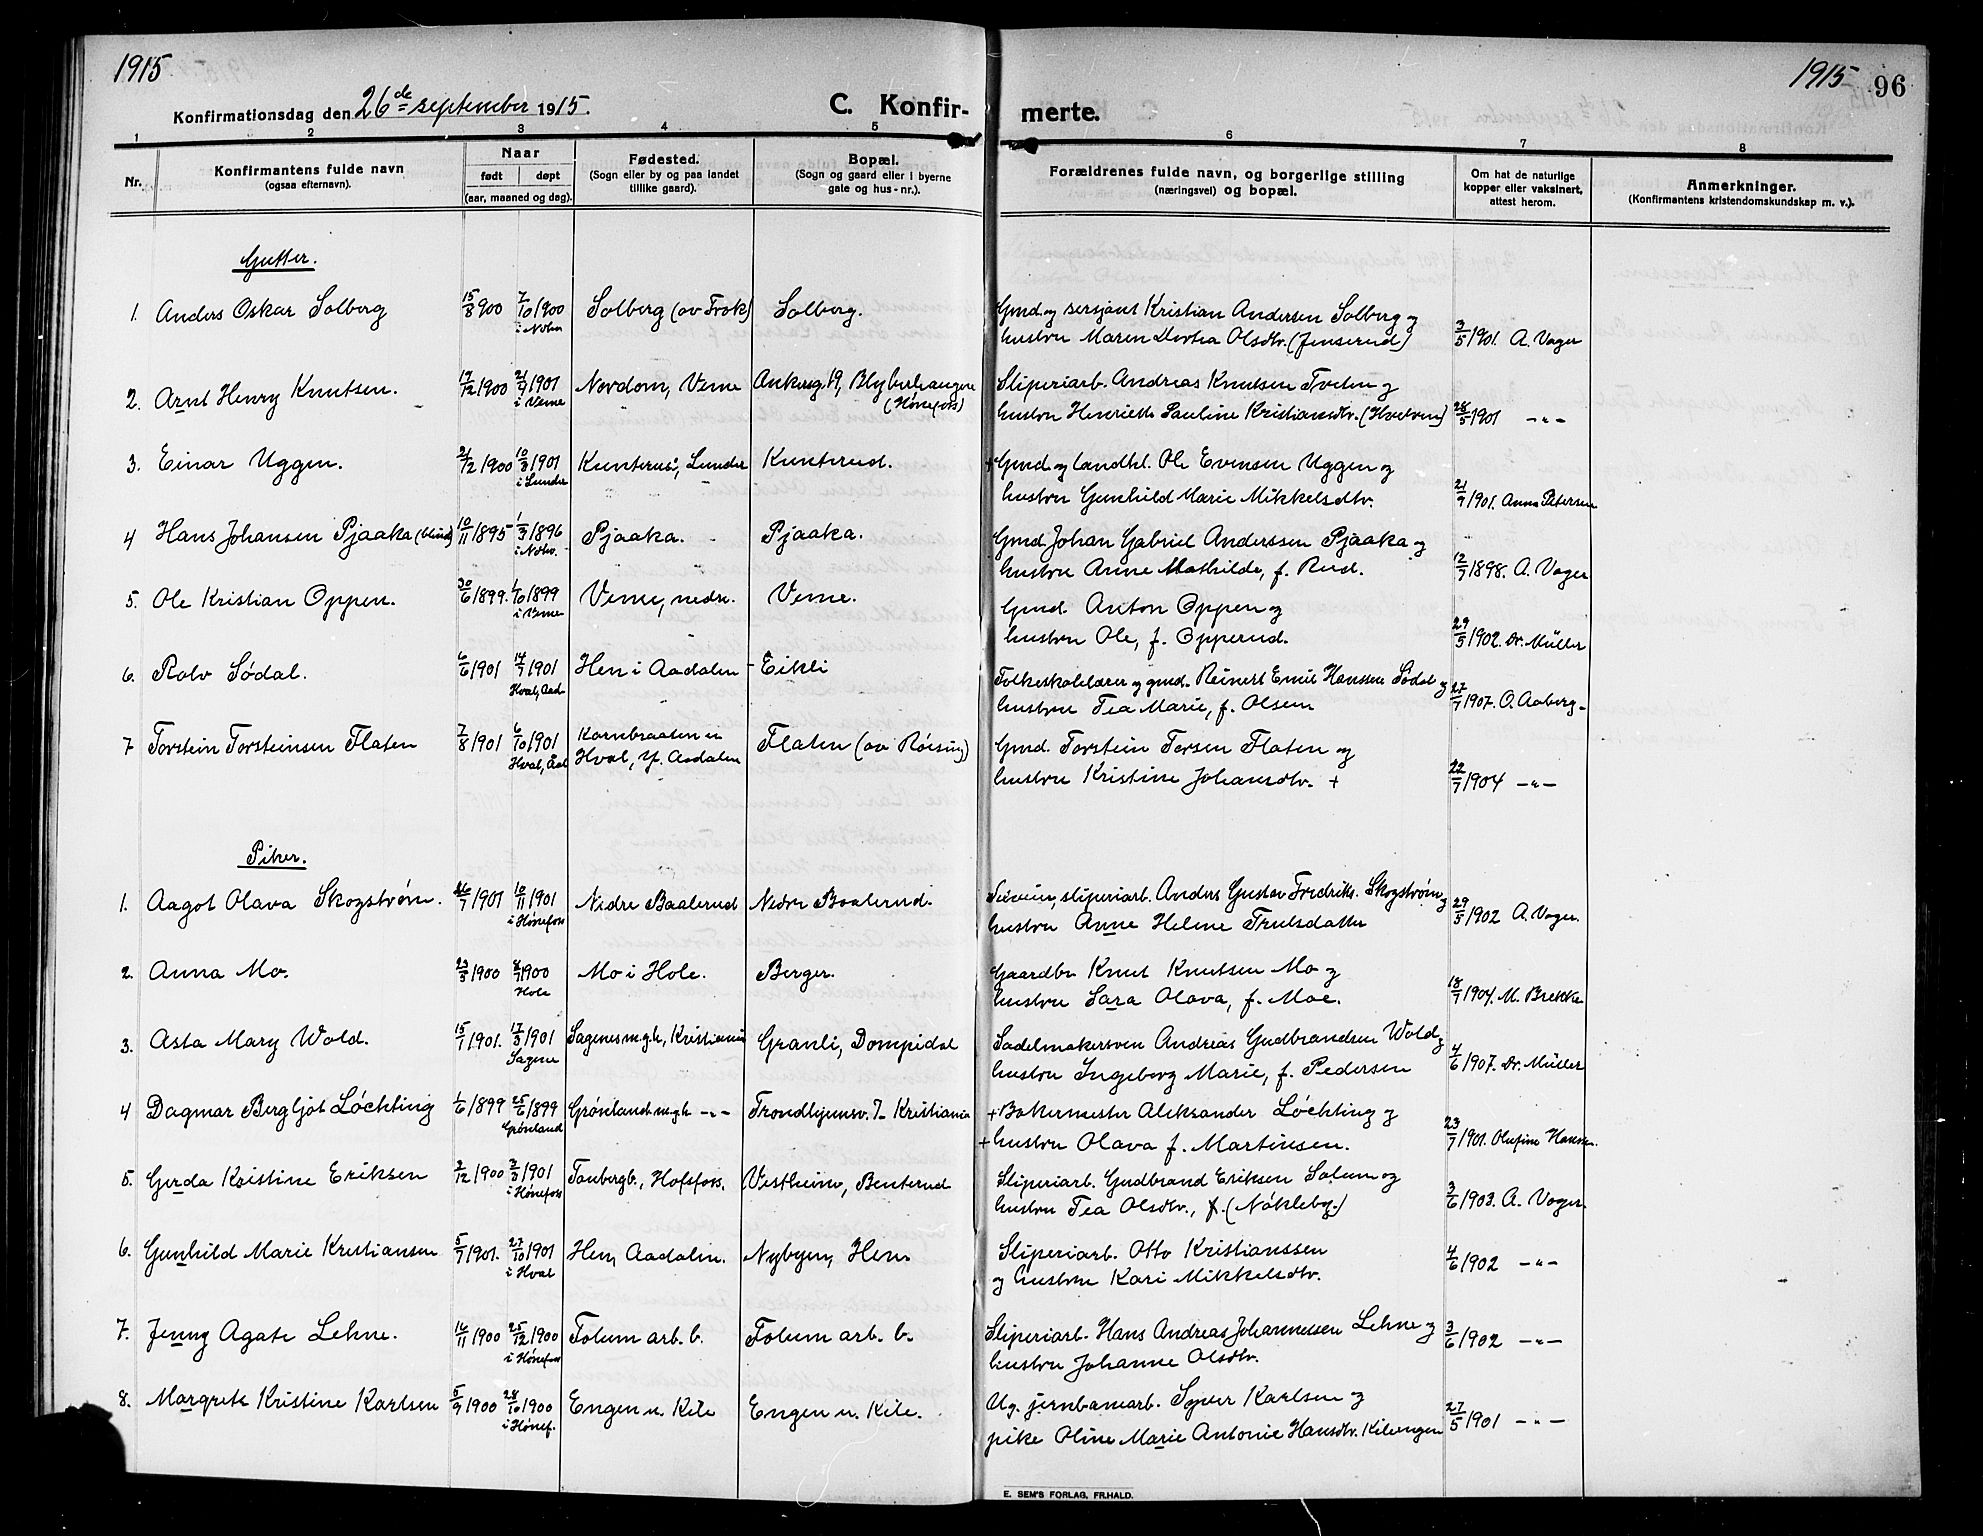 1915
1915 96
Konfirmationsdag den 26de september 1915.
C. Konfir-
merte.
1 2 3 4 5 6 7 8
Nr.
Konfirmantens fulde navn
(ogsaa efternavn).
Naar
født døpt
(aar, maaned og dag).
Fødested.
(Sogn eller by og paa landet
tillike gaard).
Bopæl.
(Sogn og gaard eller i byerne
gate og hus-nr.).
Forældrenes fulde navn, og borgerlige stilling
(næringsvei) og bopæl.
Om hat de naturlige
kopper eller vaksinert,
attest herom.
Anmerkninger.
(Konfirmantens kristendomskundskap m. v.).
Gutter.
1. Anders Oskar Solberg 15/8 900 7/10 1900 Solberg (av Frok) Solberg. Gmd og sersjant Kristian Andersen Solberg og
i Noho hustru Maren Dortea Olsdtr. (Jenserud) 3/5 1901. A. Vager
2. Arnt Henry Knutsen. 12/12 1900 21/4 1901 Nordom, Veme Ankersg. 19, Blyberhaugen
i Veme (Hønefoss)
Sliperiarb. Andreas Knutsen Tveten og
hustru Henriette Pauline Kristiansdtr. (Hvelven) 28/5 1901 -"-
3. Einar Uggen. 21/12 1900 10/3 1901 Kunterud, Lunder Kunterud. + Gmd og landhl. Ole Evensen Uggen og
i Lunder hustru Gunhild Marie Mikkelsdtr. 21/9 1901. Anna Petersen
4 Hans Johansen Pjaaka (blind) 10/11 1895 1/3 1896 Pjaaka. Pjaaka. Gmd Johan Gabriel Anderssen Pjaaka og
i Noho. hustru Anne Mathilde, f. Rud. 12/7 1898. A. Vager
5. Ole Kristian Oppen. 30/6 1899. 1/10 1899 Veme, nedre. Veme. Gmd. Anton Oppen og
i Veme hustru Ole, f. Opperud. 29/5 1902. Dr. Müller
6. Rolv Sødal. 6/6 1901 14/7 1901 Hen i Aadalen Eikli Folkeskolelærer og gmd. Reinert Emil Hanssen Sødal og
Hval, Aad. hustru Tea Marie, f. Olsen 27/7 1907. O. Aaberg
7 Torstein Torsteinsen Flaten 7/8 1901 6/10 1901 Kornbraaten u Flaten (av Røising) Gmd. Torstein Torsen Flaten og
Hval, Aad Hval, Y. Aadalen hustru Kristine Johansdtr. + 22/7 1904 -"-
Piker.
1. Aagot Olava Skogstrøm. 26/7 1901 10/11 1901 Nedre Baalerud Nedre Baalerud. Seieier, sliperiarb. Anders Gustav Fredriks. Skogstrøm og
i Hønefoss hustru Anne Helene Trulsdatter 29/5 1902 A. Vager.
2. Anna Mo. 23/5 1900 8/7 1900 Mo i Hole. Berger. Gaardbr Knut Knutsen Mo og
Hole hustru Sara Olava, f. Moe. 18/7 1904. M. Brekke
3. Asta Mary Wold. 15/1 1901. 17/3 1901 Sagenes m.gh, Kristiania Granli, Dompidal Sadelmakersven Andreas Gudbrandsen Wold og
Sagene hustru Ingeborg Marie, f. Pedersen 4/6 1907. Dr. Müller
4 Dagmar Bergljot Løchting 1/6 1899 25/6 1899 Grønland m.gh. -"- Trondhjemsv. 7 Kristiania + Bakermester Aleksander Løchting og
Grønland + hustru Olava f. Martinsen. 23/7 1901. Olufine Hansen.
5. Gerda Kristine Eriksen 2/12 1900 3/3 1901 Tanbergb., Hofsfoss. Vestheim, Benterud Sliperiarb. Gudbrand Eriksen Solum og
i Hønefoss hustru Tea Olsdtr., f. (Nøkleby.) 3/6 1903. A. Vager.
6. Gunhild Marie Kristiansen 5/9 1901. 27/10 1901 Hen, Aadalen. Nybyen, Hen. Sliperiarb. Otto Kristianssen
i Hval og hustru Kari Mikkelsdtr. 4/6 1902 -"-
7. Jenny Agate Lehne. 16/11 1900 25/12 1900 Follum arb. b. Follum arb. b. Sliperiarb. Hans Andreas Johannessen Lehne og
i Hønefoss hustru Johanne Olsdtr. 3/6 1902 -"-
8. Margrete Kristine Karlsen 5/9 1900 28/10 1900 Engen u. Kile Engen u. Kile. Ug. jernbanearb. Syver Karlsen og
i Hønef. pike Oline Marie Antonie Hansdtr. Kilengen 27/5 1901 -"-
E. SEM'S FORLAG, FR.HALD.